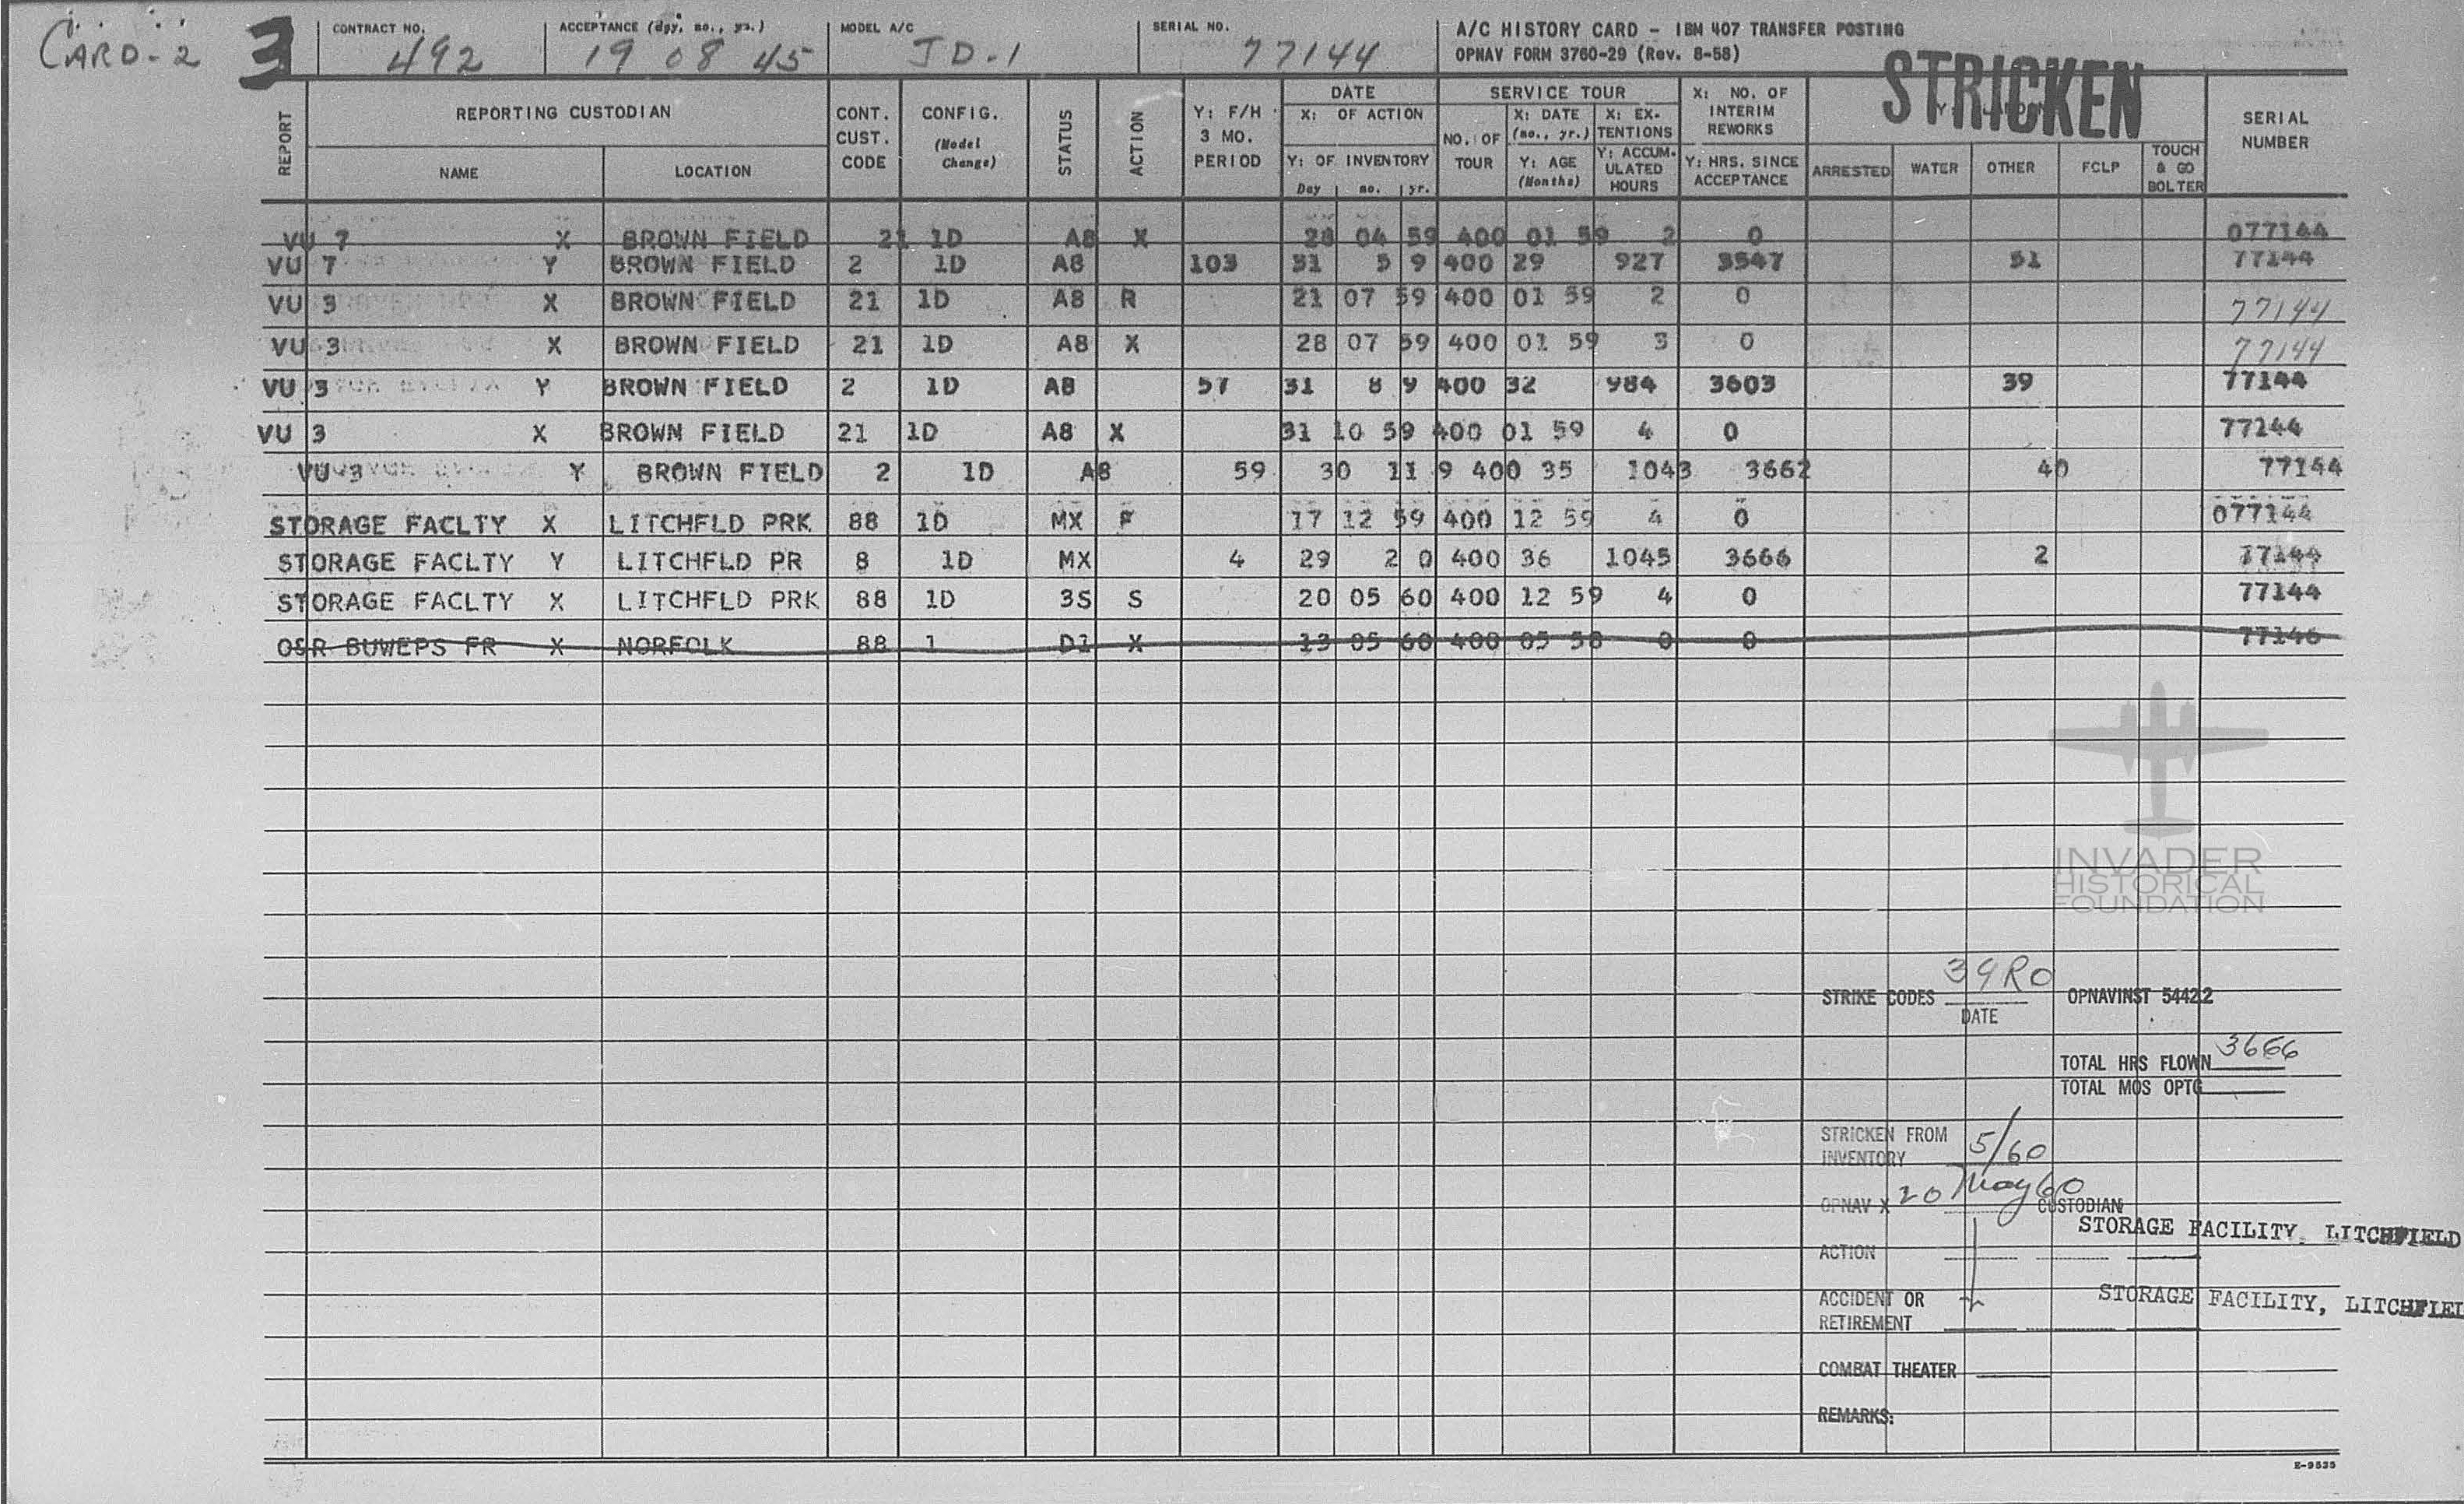 CARD-2 3 CONTRACT NO. 492 ACCEPTANCE (day, mo., yr.) 19 08 45 MODEL A/C JD-1 SERIAL NO. 77144 A/C HISTORY CARD - IBM 407 TRANSFER POSTING
OPNAV FORM 3760-29 (Rev. 8-58)
STRICKEN
REPORT
REPORTING CUSTODIAN
NAME
LOCATION
CONT. CUST. CODE
CONFIG. (Model Change)
STATUS
ACTION
Y: F/H 3 MO. PERIOD
DATE
X: OF ACTION
Y: OF INVENTORY
Day mo. yr.
SERVICE TOUR
NO. OF TOUR
X: DATE (mo., yr.)
Y: AGE (Months)
X: EX-TENTIONS
Y: ACCUM-ULATED HOURS
X: NO. OF INTERIM REWORKS
Y: HRS. SINCE ACCEPTANCE
ARRESTED
WATER
OTHER
FCLP
TOUCH & GO BOLTER
SERIAL NUMBER
VU 7 X BROWN FIELD 21 1D A8 X 28 04 59 400 01 59 2 0 077144
VU 7 Y BROWN FIELD 2 1D A8 103 31 5 9 400 29 927 3547 51 77144
VU 3 X BROWN FIELD 21 1D A8 R 21 07 59 400 01 59 2 0 77144
VU 3 X BROWN FIELD 21 1D A8 X 28 07 59 400 01 59 3 0 77144
VU 3 Y BROWN FIELD 2 1D A8 57 31 8 9 400 32 984 3603 39 77144
VU 3 X BROWN FIELD 21 1D A8 X 31 10 59 400 01 59 4 0 77144
VU 3 Y BROWN FIELD 2 1D A8 59 30 11 9 400 35 1043 3662 40 77144
STORAGE FACLTY X LITCHFLD PRK 88 1D MX F 17 12 59 400 12 59 4 0 077144
STORAGE FACLTY Y LITCHFLD PR 8 1D MX 4 29 2 0 400 36 1045 3666 2 77144
STORAGE FACLTY X LITCHFLD PRK 88 1D 3S S 20 05 60 400 12 59 4 0 77144
O&R BUWEPS FR X NORFOLK 88 1 D1 X 13 05 60 400 05 58 0 0 77146
INVADER
HISTORICAL
FOUNDATION
STRIKE CODES 39RO OPNAVINST 5442.2
DATE
TOTAL HRS FLOWN 3666
TOTAL MOS OPTG
STRICKEN FROM
INVENTORY 5/60
OPNAV X 20 May 60 CUSTODIAN
STORAGE FACILITY, LITCHFIELD
ACTION
ACCIDENT OR STORAGE FACILITY, LITCHFIEL
RETIREMENT
COMBAT THEATER
REMARKS:
E-9535